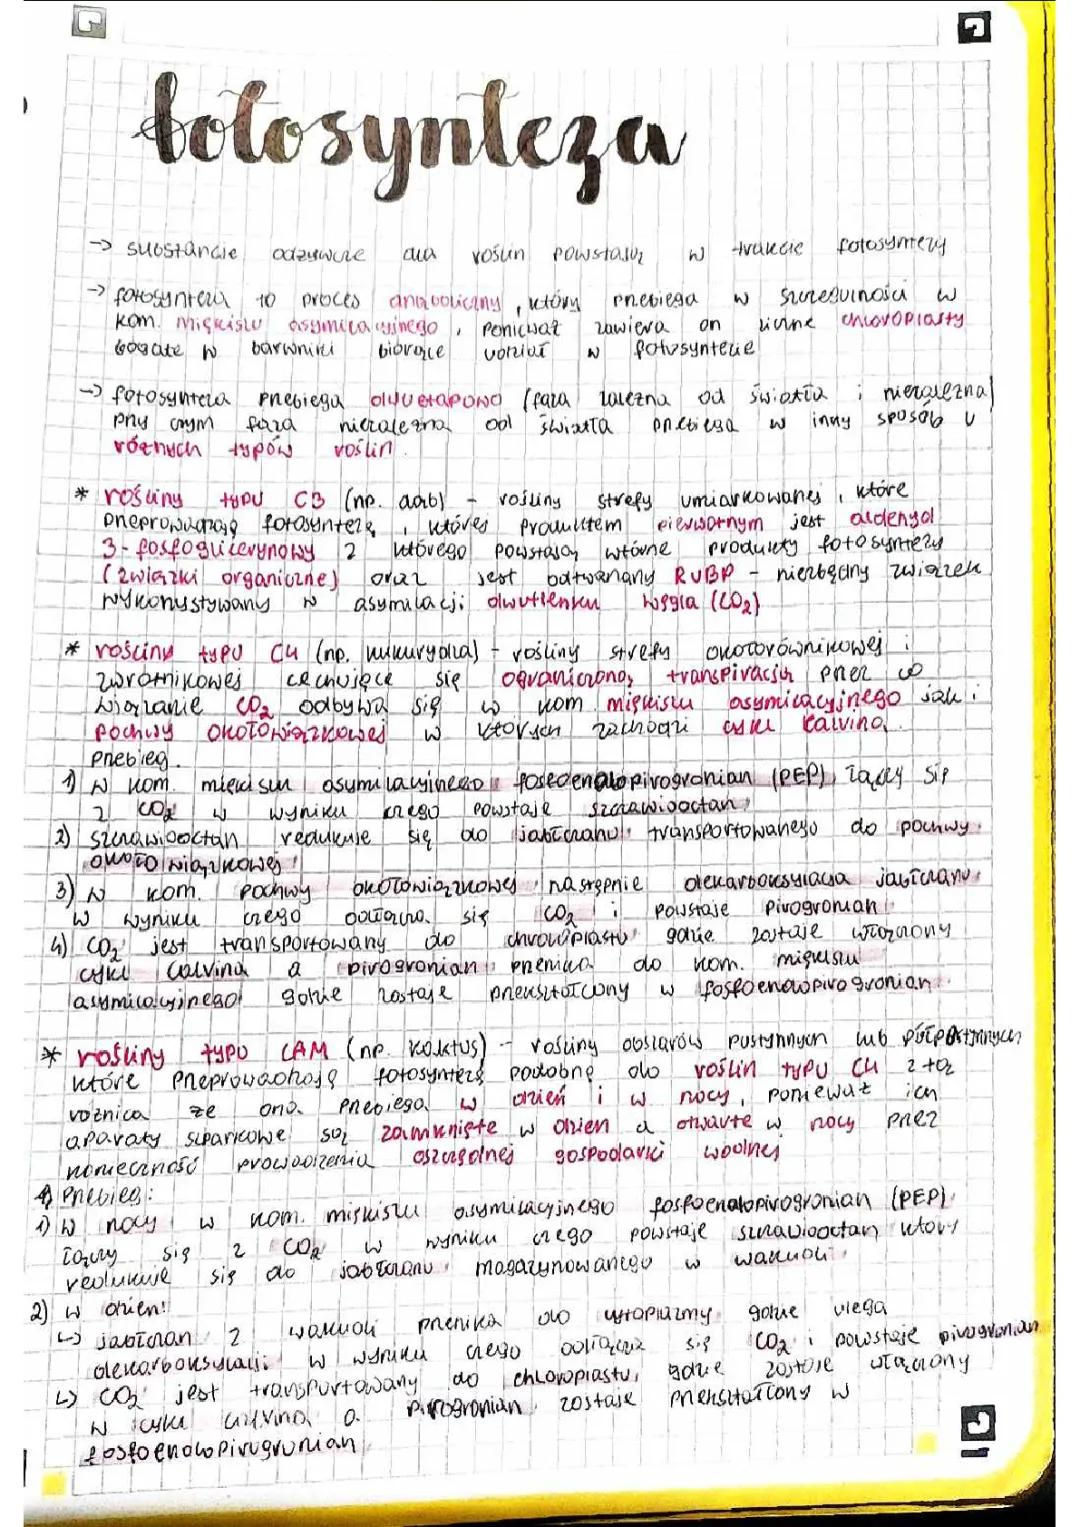 fotosynteza
→ substancje odżywcze dla roślin powstają w trakcie fotosyntezy
→ fotosynteza to proces anaboliczny, który przebiega w szczególności w
kom. miękiszu asymilacyjnego, ponieważ zawiera on liczne chloroplasty
bogate w barwniki biorące udział w fotosyntezie
→ fotosynteza przebiega dwuetapowo (faza zależna od światła i niezależna)
przy czym faza niezależna od światła przebiega w inny sposób u
różnych typów roślin.
* rośliny typu C3 (np. dąb) - rośliny strefy umiarkowanej, które
przeprowadzają fotosyntezę, której produktem pierwotnym jest aldehyd
3-fosfoglicerynowy z którego powstają wtórne produkty fotosyntezy
(związki organiczne) oraz jest odtwarzany RUBP - niezbędny związek
wykorzystywany w asymilacji dwutlenku węgla (CO2)
* rośliny typu C4 (np. kukurydza) - rośliny strefy okołorównikowej i
zwrotnikowej cechujące się ograniczoną transpiracją przez co
wiązanie CO2 odbywa się w kom. miękiszu asymilacyjnego jak i
pochwy okołowiązkowej w których zachodzi cykl Calvina.
Przebieg.
1) W kom. miękiszu asymilacyjnego fosfoenolopirogronian (PEP) łączy się
z CO2 w wyniku czego powstaje szczawiooctan
2) szczawiooctan redukuje się do jabłczanu transportowanego do pochwy
okołowiązkowej
3) W kom. pochwy okołowiązkowej następnie dekarboksylacja jabłczanu
w wyniku czego odłącza się CO2 i powstaje pirogronian
4) CO2 jest transportowany do chloroplastu gdzie zostaje włączony
cykl Calvina a pirogronian przenika do kom. miękiszu
asymilacyjnego gdzie zostaje przekształcony w fosfoenolopirogronian.
* rośliny typu CAM (np. kaktus) - rośliny obszarów pustynnych lub półpustynnych
które przeprowadzają fotosyntezę podobnę do roślin typu C4 z tą
różnicą że ona przebiega w dzień i w nocy, ponieważ ich
aparaty szparkowe są zamknięte w dzień a otwarte w nocy przez
konieczność prowadzenia oszczędnej gospodarki wodnej
Przebieg:
1) W nocy w kom. miękiszu asymilacyjnego fosfoenolopirogronian (PEP)
łączy się z CO2 w wyniku czego powstaje szczawiooctan który
redukuje się do jabłczanu magazynowanego w wakuoli
2) w dzień:
↳ jabłczan z wakuoli przenika do cytoplazmy gdzie ulega
dekarboksylacji w wyniku czego odłącza się CO2 i powstaje pirogronian
↳ CO2 jest transportowany do chloroplastu, gdzie zostaje włączony
w cykl Calvina, a pirogronian zostaje przekształcony w
fosfoenolopirogronian